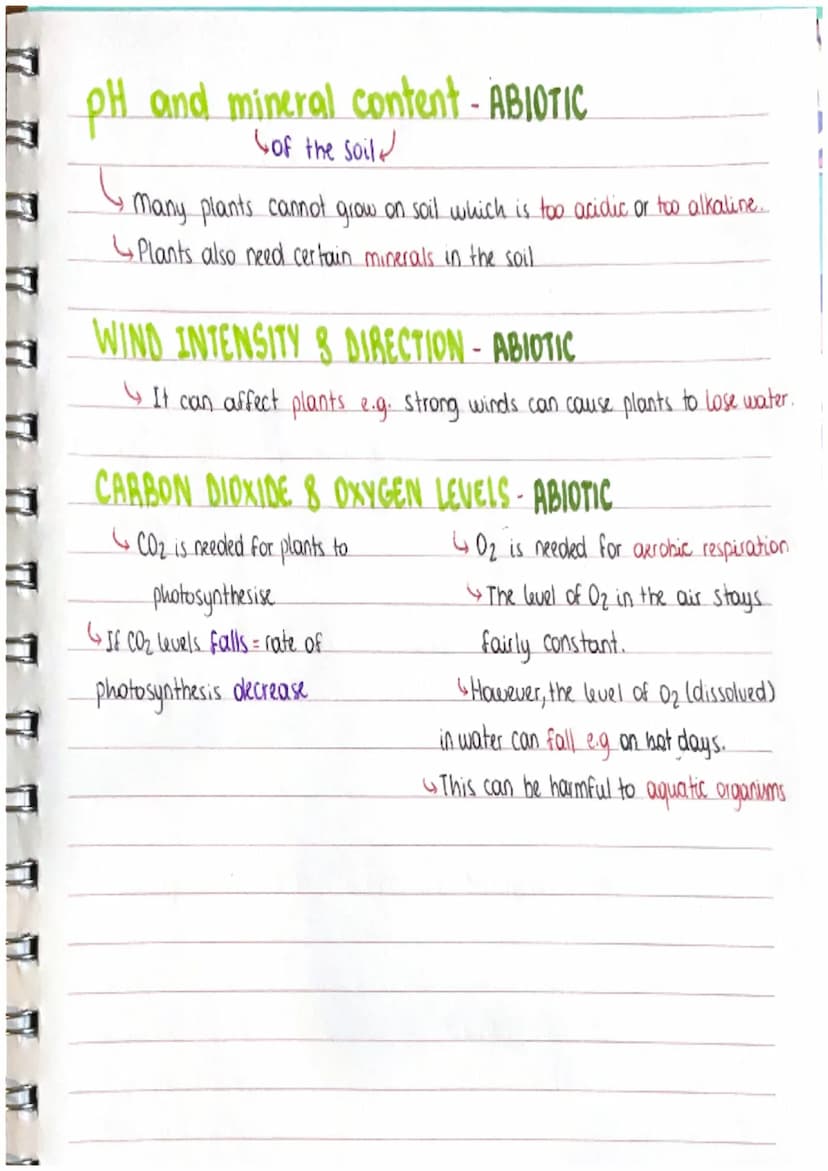 pH and mineral content - ABIOTIC
of the soil
Many plants cannot grow on soil which is too acidic or too alkaline.
Plants also need certain minerals in the soil
WIND INTENSITY & DIRECTION - ABIOTIC
It can affect plants e.g. strong winds can cause plants to lose water.
CARBON DIOXIDE & OXYGEN LEVELS - ABIOTIC
CO2 is needed for plants to
photosynthesise
If CO2 levels falls = rate of
photosynthesis decrease
O2 is needed for aerobic respiration
The level of O2 in the air stays
fairly constant.
However, the level of O2 (dissolved)
in water can fall e.g on hot days.
This can be harmful to aquatic organisms